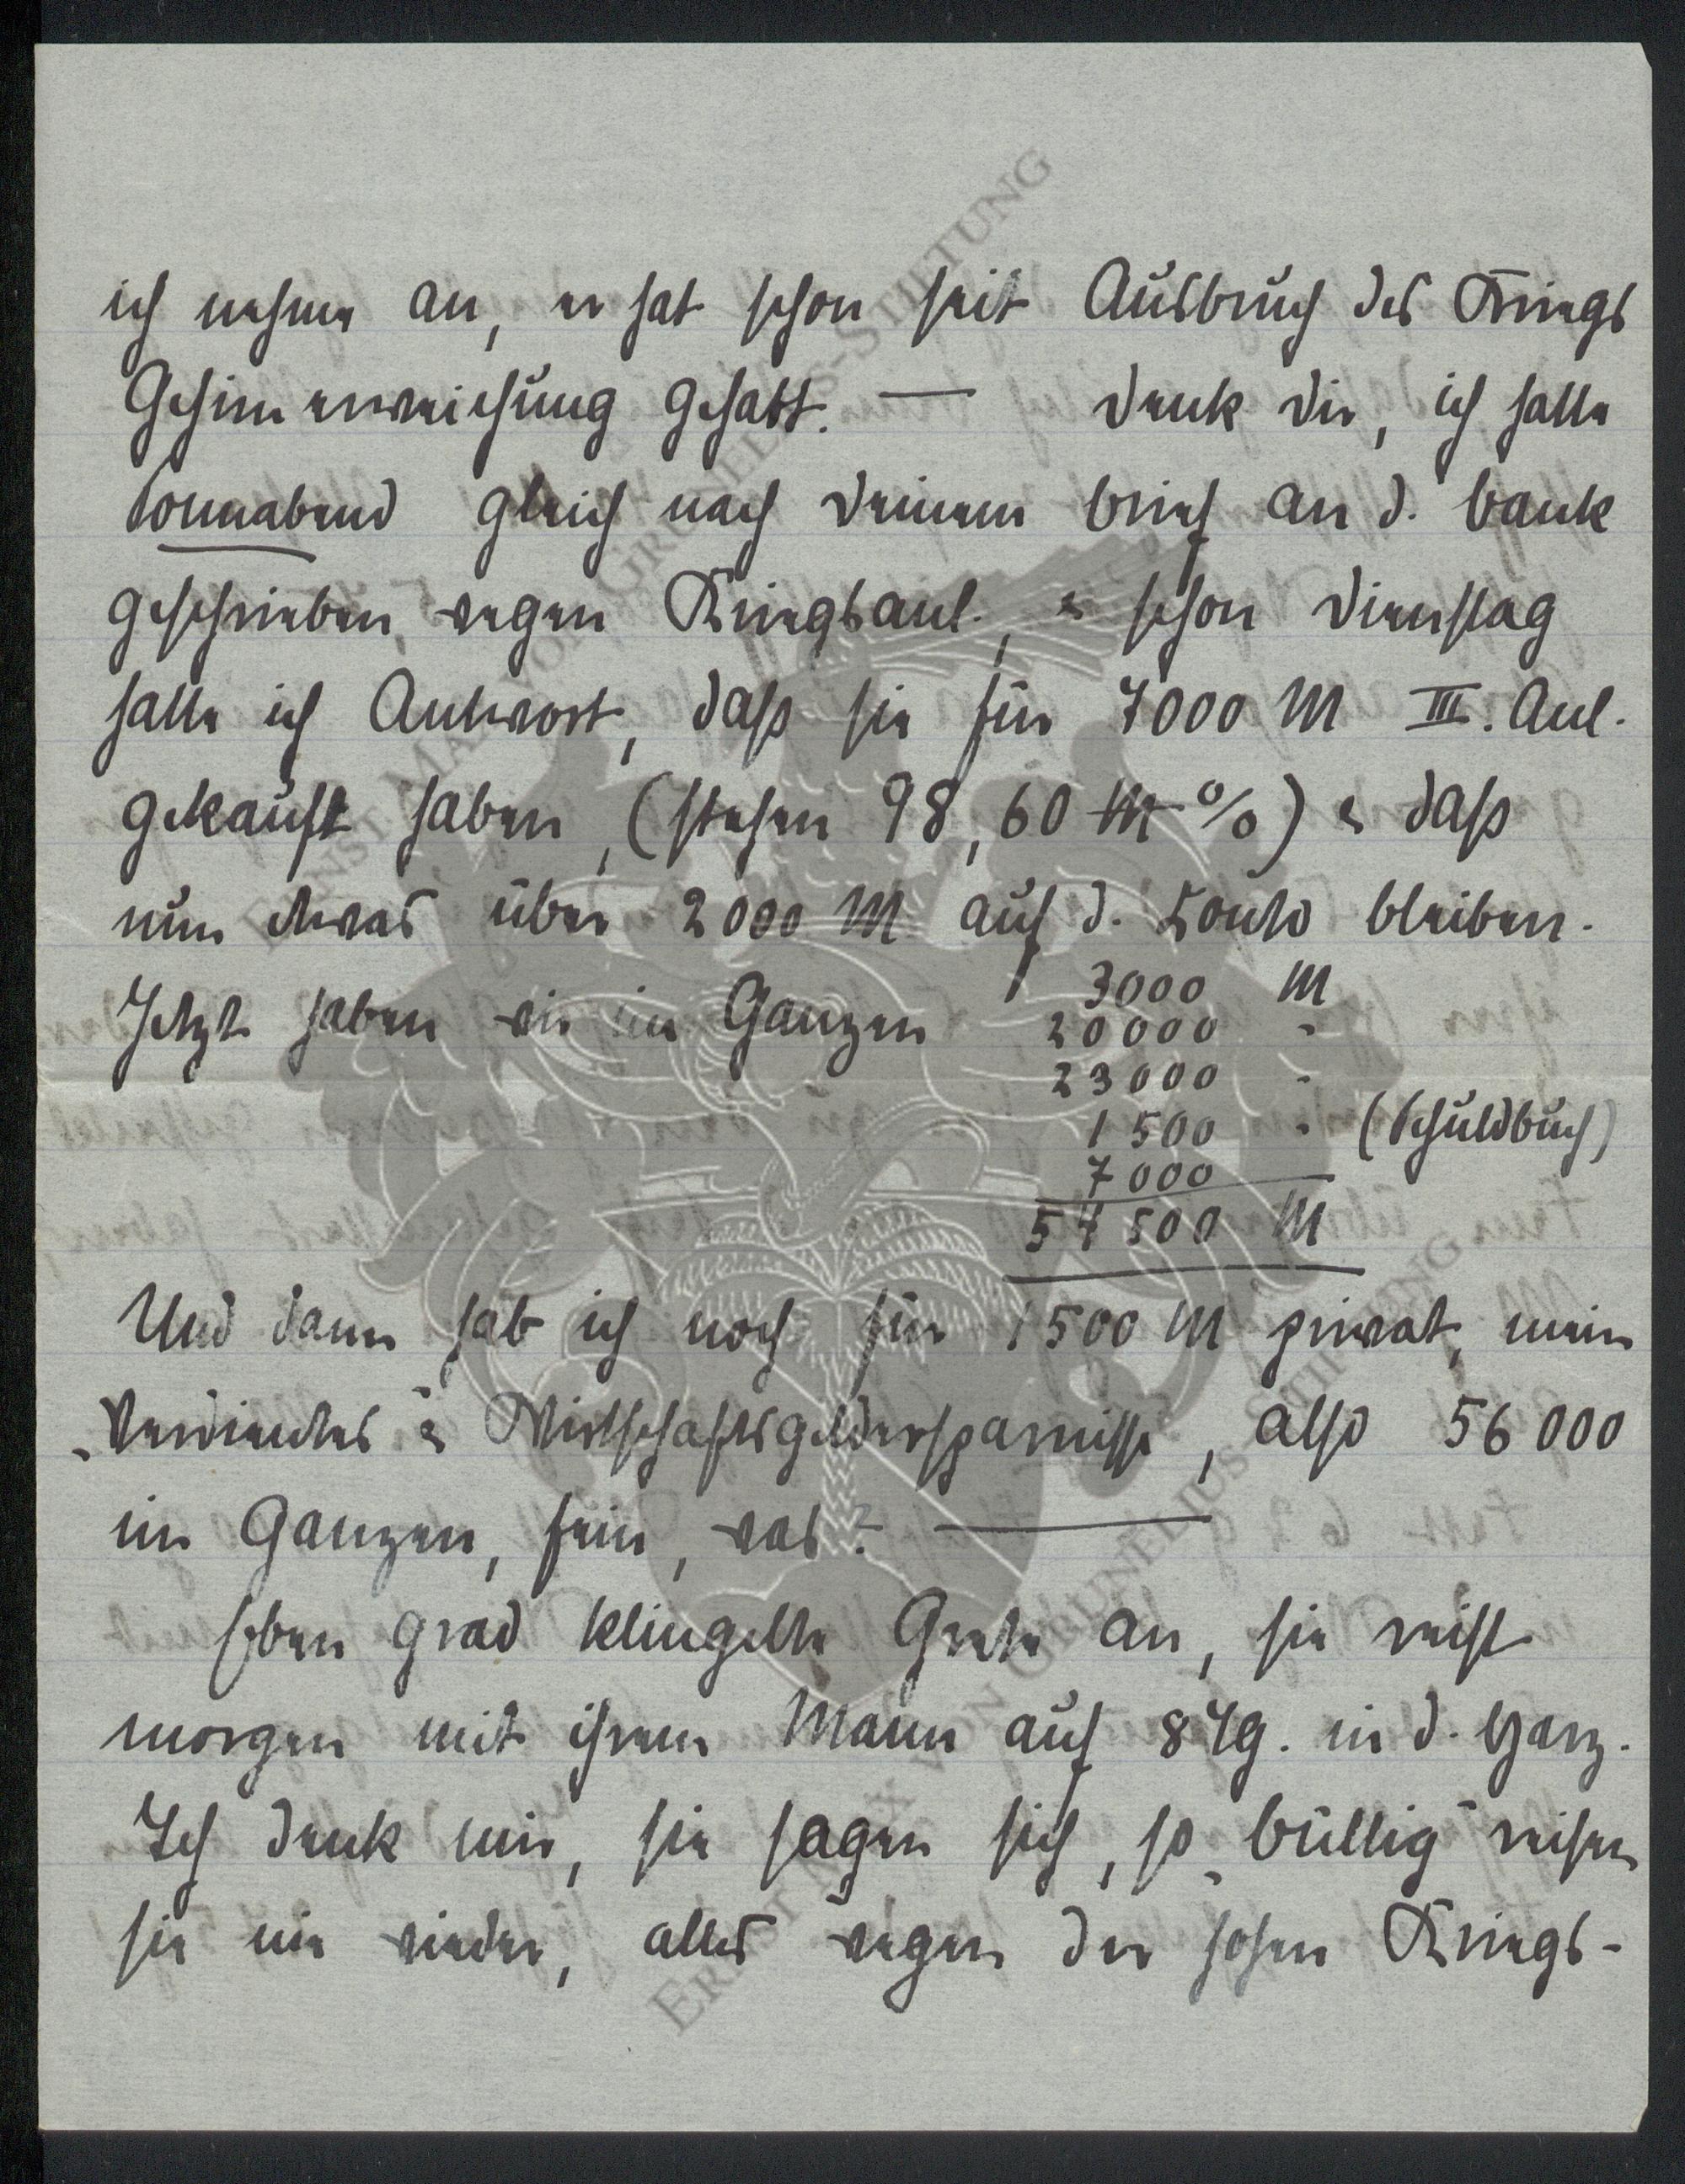 ich nehme an, er hat schon seit Ausbruch des Kriegs
Gehirnerweichung gehabt. — Denk Dir, ich hatte
Sonnabend gleich nach Deinem Brief an d. Bank
geschrieben, wegen Kriegsanl., & schon Dienstag
hatte ich Antwort, daß sie für 7000 M III. Anl.
gekauft haben, (stehen 98,60 M %) & daß
nun etwas über 2000 M auf d. Konto bleiben.
3000 M
Jetzt haben wir im Ganzen 20000 "
23000 "
1500 " (Schuldbuch)
7000
54500 M
Und dann hab ich noch für 1500 M privat, mein
„Verdientes“ & Wirtschaftsgeldersparnisse, also 56000
im Ganzen, fein, was? —
Eben grad klingelte Grete an, sie reist
morgen mit ihrem Mann auf 8 Tg. in d. Harz.
Ich denk mir, sie sagen sich, so „büllig“ reisen
sie nie wieder, alles wegen der hohen Kriegs-
ERNST MAX VON GRUNELIUS-STIFTUNG
ERNST MAX VON GRUNELIUS-STIFTUNG